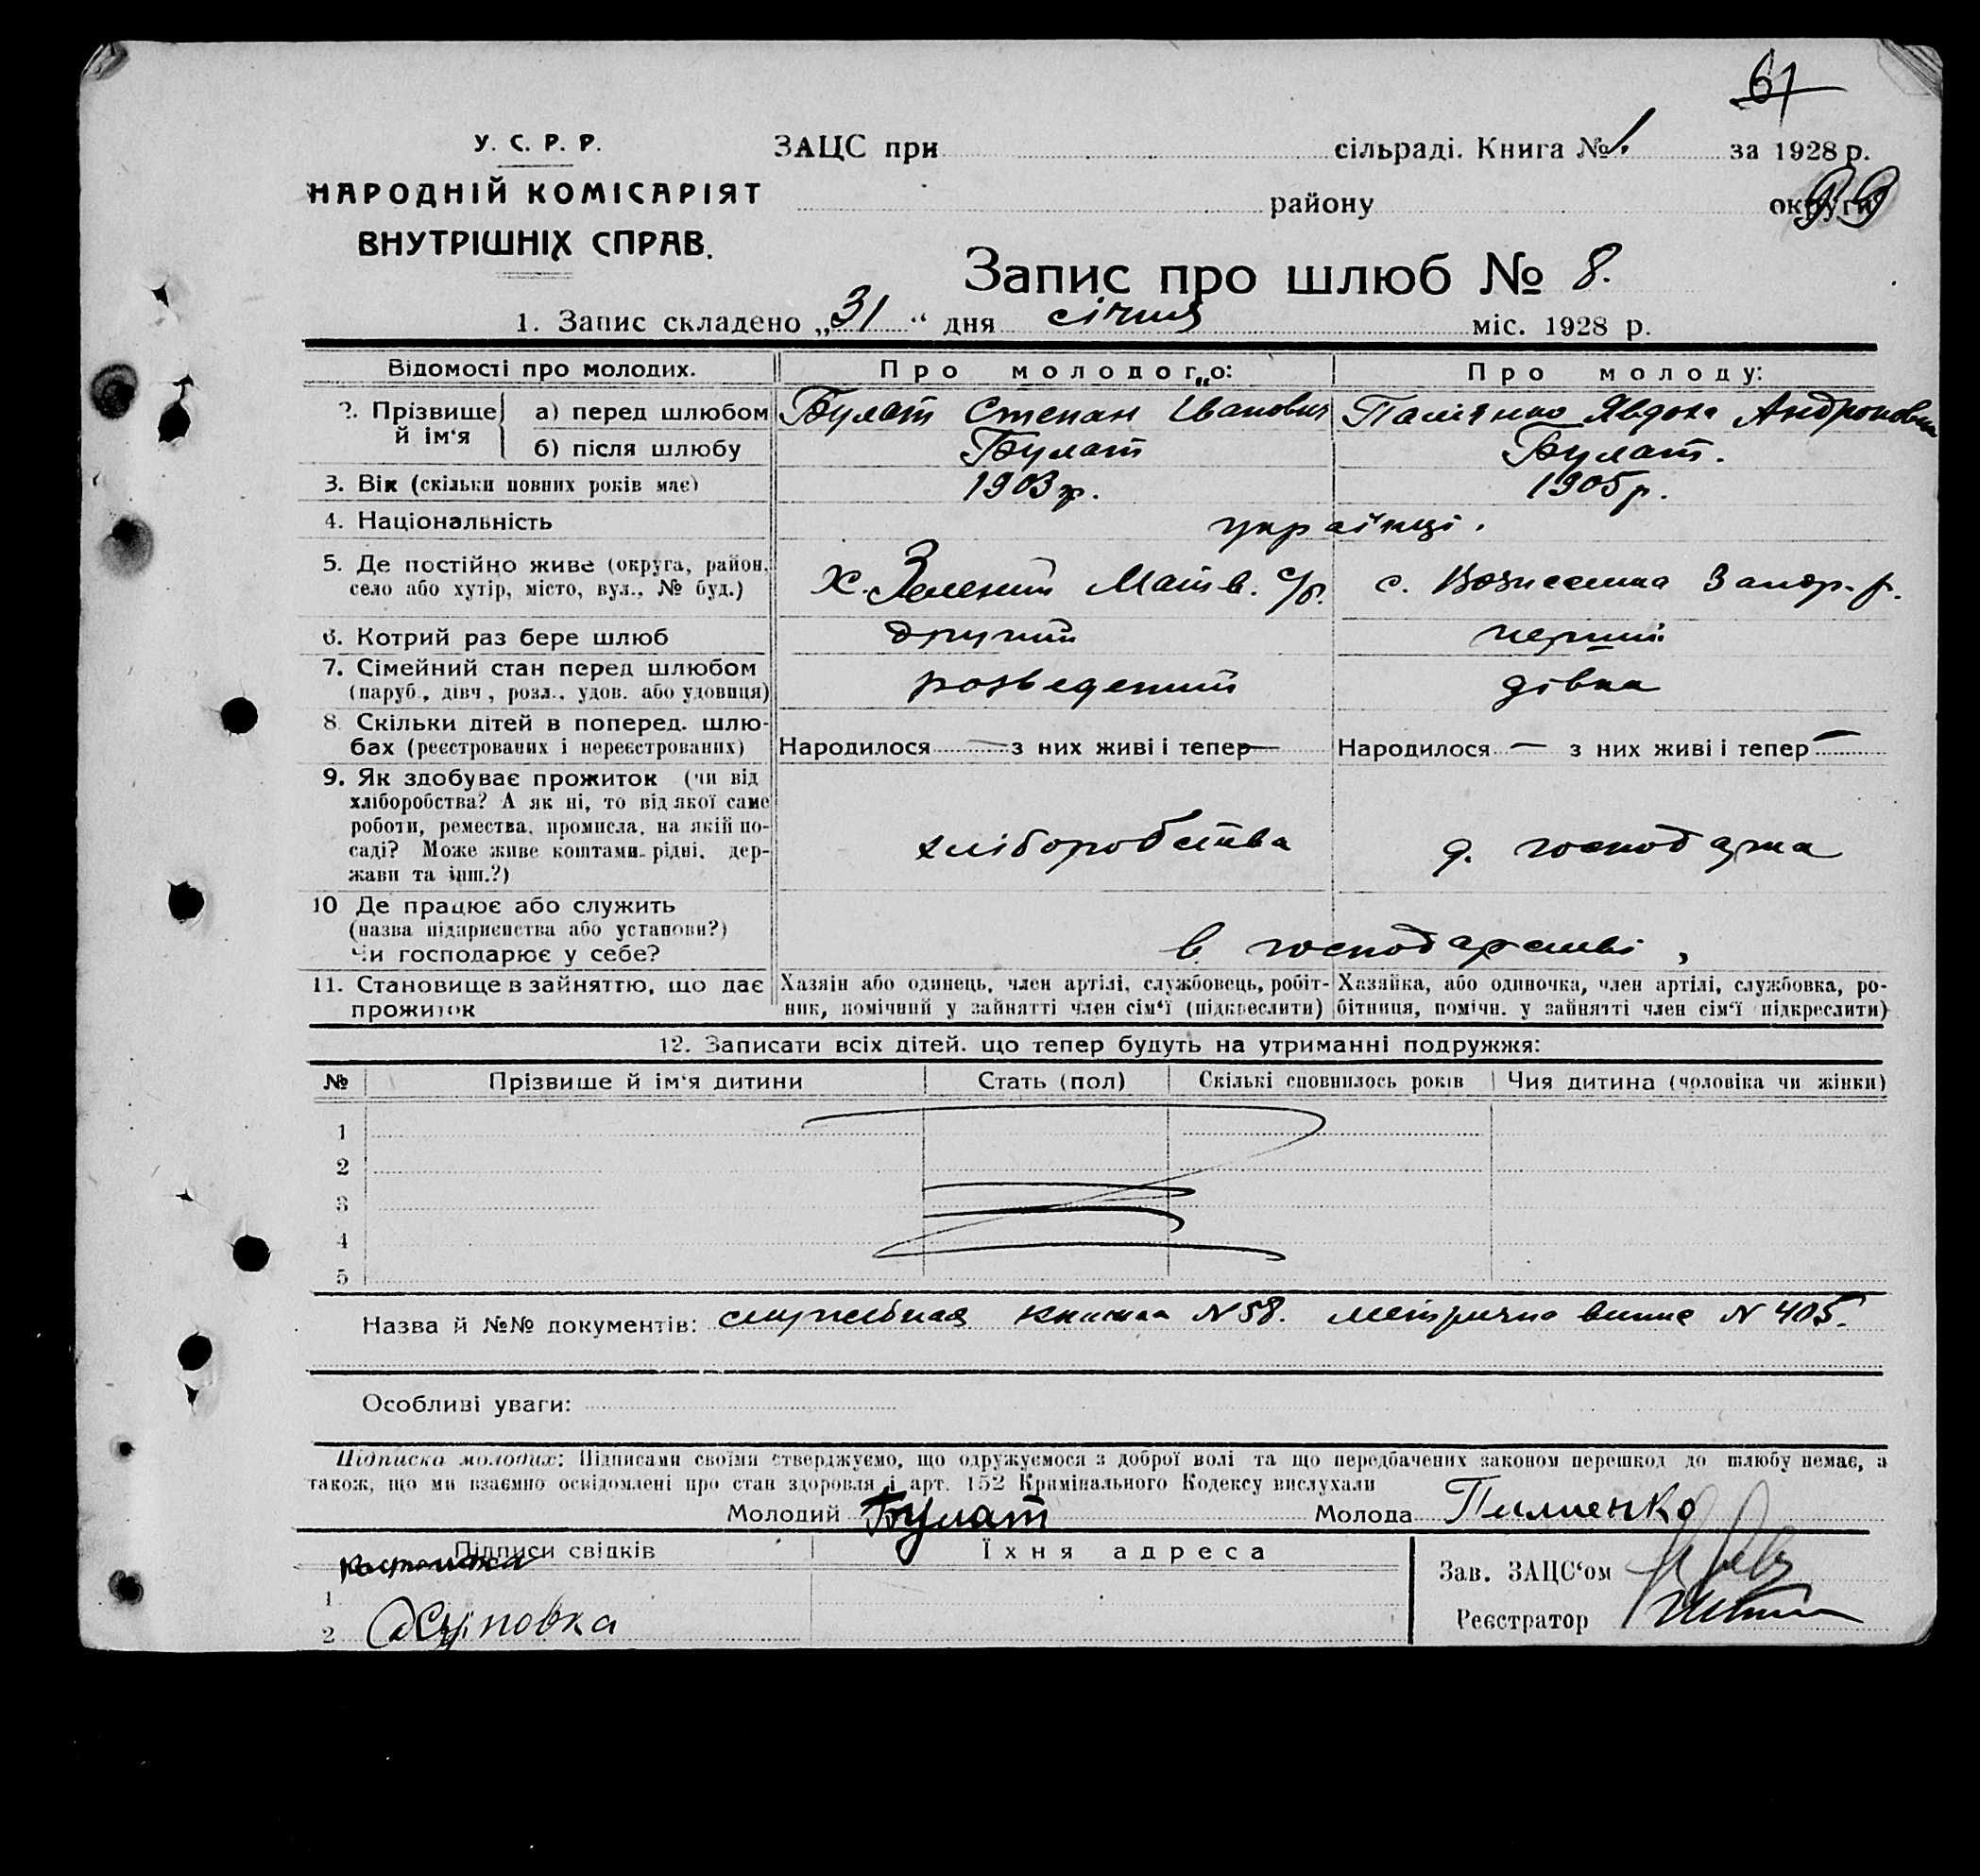 61
У. С. Р. Р.
НАРОДНІЙ КОМІСАРІЯТ
ВНУТРІШНІХ СПРАВ.
ЗАЦС при сільраді. Книга № 1. за 1928 р.
району округи
99
Запис про шлюб № 8.
1. Запис складено „31“ дня січня міс. 1928 р.
Відомості про молодих. Про молодого: Про молоду:
2. Прізвище й ім‘я а) перед шлюбом Булат Степан Іванович Явдоха Андроновна
б) після шлюбу Булат Булат.
3. Вік (скільки повних років має) 1903 р. 1905 р.
4. Національність українці.
5. Де постійно живе (округа, район, х. Зелений Матв. с/р. с. Вознесенка Запор. р.
село або хутір, місто, вул., № буд.)
6. Котрий раз бере шлюб другий перший
7. Сімейний стан перед шлюбом розведений дівка
(паруб., дівч., розл., удов. або удовиця)
8 Скільки дітей в поперед. шлю-
бах (реєстрованих і нереєстрованих) Народилося — з них живі і тепер — Народилося — з них живі і тепер —
9. Як здобуває прожиток (чи від
хліборобства? А як ні, то від якої саме
роботи, ремества, промисла, на якій по- хліборобства д. господарка
саді? Може живе коштами рідні, дер-
жави та інш.?)
10 Де працює або служить
(назва підприєнства або установи?)
Чи господарює у себе? в господарстві,
11. Становище в зайняттю, що дає Хазяін або одинець, член артілі, службовець, робіт- Хазяйка, або одиночка, член артілі, службовка, ро-
прожиток ник, помічний у зайнятті член сім‘ї (підкреслити) бітниця, помічн. у зайнятті член сім‘ї підкреслити)
12. Записати всіх дітей. що тепер будуть на утриманні подружжя:
№ Прізвише й ім‘я дитини Стать (пол) Скількі сповнилось років Чия дитина (чоловіка чи жінки)
1
2
3
4
5
Назва й №№ документів: служебная книжка N 58. метрична випис N 405.
Особливі уваги:
Підписка молодих: Підписами своїми стверджуємо, що одружуємося з доброї волі та що передбачених законом перешкод до шлюбу немає, а
також, що ми взаємно освідомлені про стан здоровля і арт. 152 Кримінального Кодексу вислухали
Молодий Булат Молода Пилиенко
Підписи свідків Їхня адреса
Зав. ЗАЦС‘ом
1
Реєстратор
2